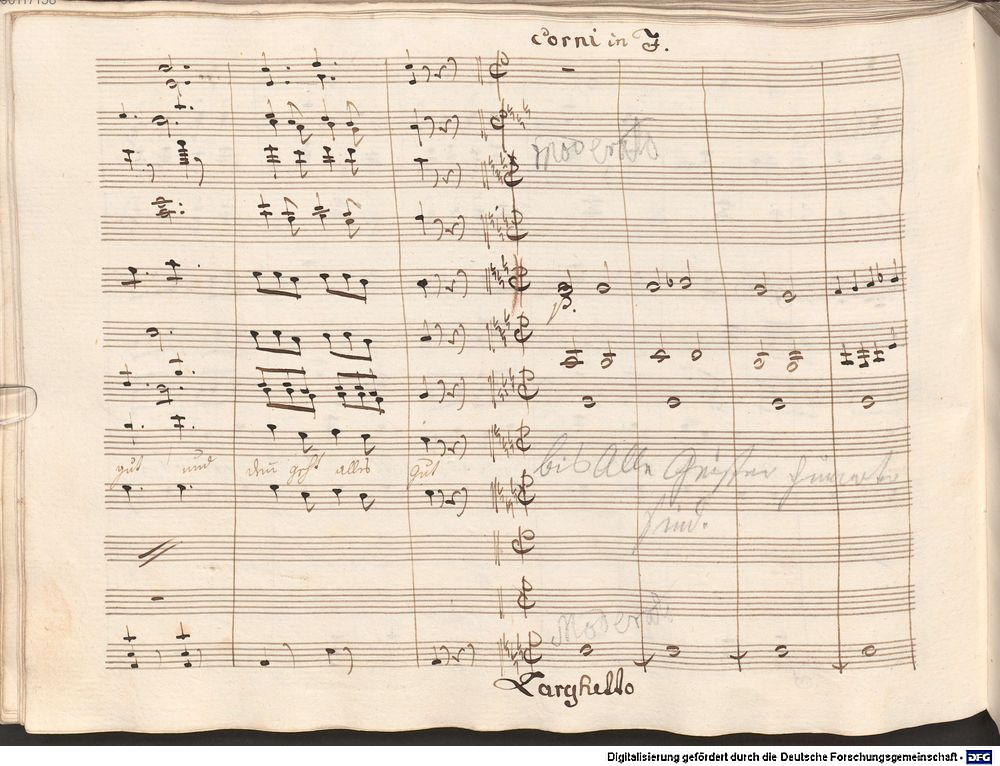 Corni in F.
Moderato
gut und dein geht alles gut
bis Alle Geister
sind.
Moderat.
Larghetto
Digitalisierung gefördert durch die Deutsche Forschungsgemeinschaft - DFG